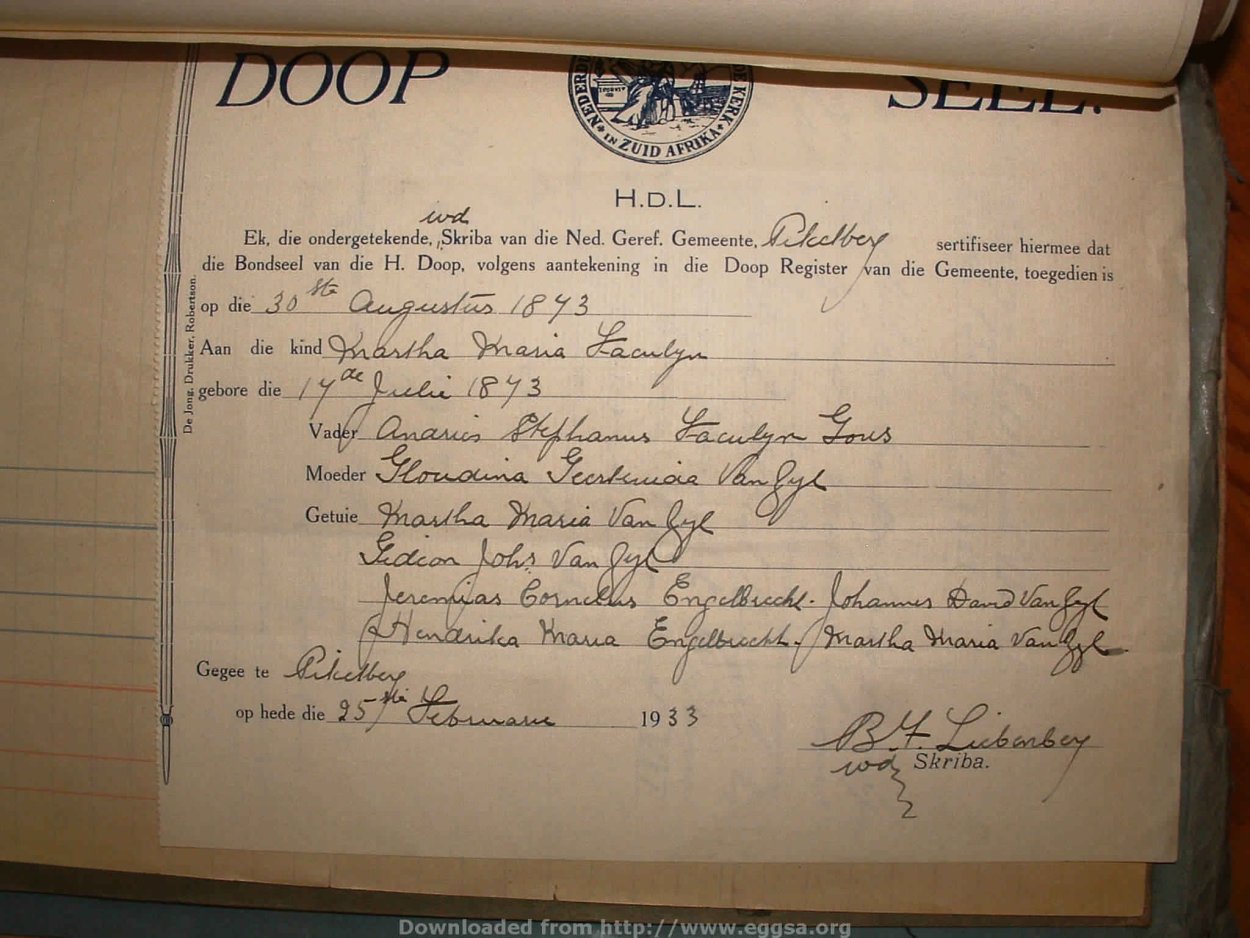 DOOP SEEL.
NEDERD DE KERK
IN ZUID AFRIKA
H.D.L.
wd
Ek, die ondergetekende, Skriba van die Ned. Geref. Gemeente, Piketberg sertifiseer hiermee dat
die Bondseel van die H. Doop, volgens aantekening in die Doop Register van die Gemeente, toegedien is
op die 30ste Augustus 1873
Aan die kind Martha Maria Facolyn
gebore die 17de Julie 1873
Vader Andries Stephanus Facolyn Gous
Moeder Gloudina Geertruida Van Zyl
Getuie Martha Maria Van Zyl
Gideon Johs. Van Zyl
Jeremias Cornelus Engelbrecht. Johannes David Van Zyl
Hendrika Maria Engelbrecht. Martha Maria Van Zyl.
Gegee te Piketberg
op hede die 25ste Februarie 1933
B. F. Liebenberg
wd Skriba.
De Jong, Drukker, Robertson.
Downloaded from http://www.eggsa.org